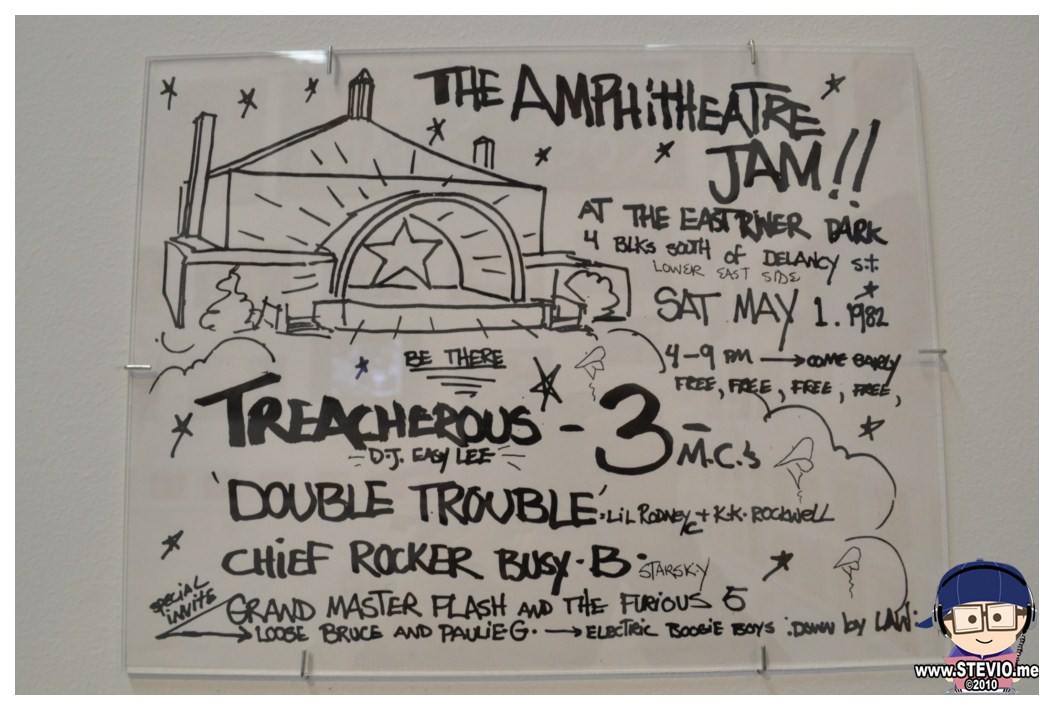 THE AMPHITHEATRE
JAM!!
AT THE EAST RIVER PARK
4 BLKS SOUTH of DELANCY st.
LOWER EAST SIDE
SAT MAY 1. 1982
4-9 PM → COME EARLY
FREE, FREE, FREE, FREE,
BE THERE
TREACHEROUS - 3 - M.C.'s
D.J. EASY LEE
'DOUBLE TROUBLE': LIL RODNEY C + K.K. ROCKWELL
CHIEF ROCKER BUSY-B. STARSKY
SPECIAL INVITE
GRAND MASTER FLASH AND THE FURIOUS 5
LOOSE BRUCE AND PAULIE G. → ELECTRIC BOOGIE BOYS :Down by LAW:
www.STEVIO.me
©2010